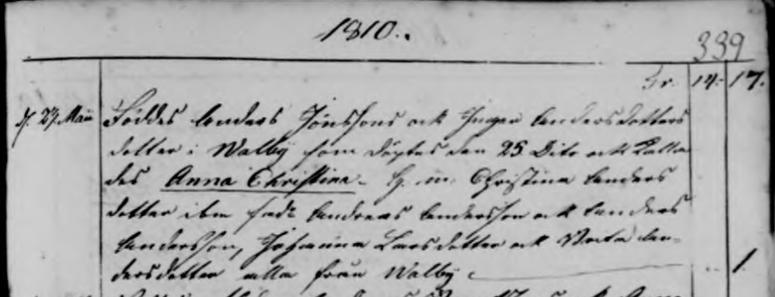 1810.
339
Tr. 14. 17.
d. 27 Maii Föddes Anders Jönssons och Inger Andersdotters
dotter i Walby som döptes den 25 Dito och kalla
des Anna Christina. G. m. Christina Anders
dotter ibm fadr Andreas Andersson och Anders
Andersson, Johanna Larsdotter och Maria An-
dersdotter alla från Walby. 1.